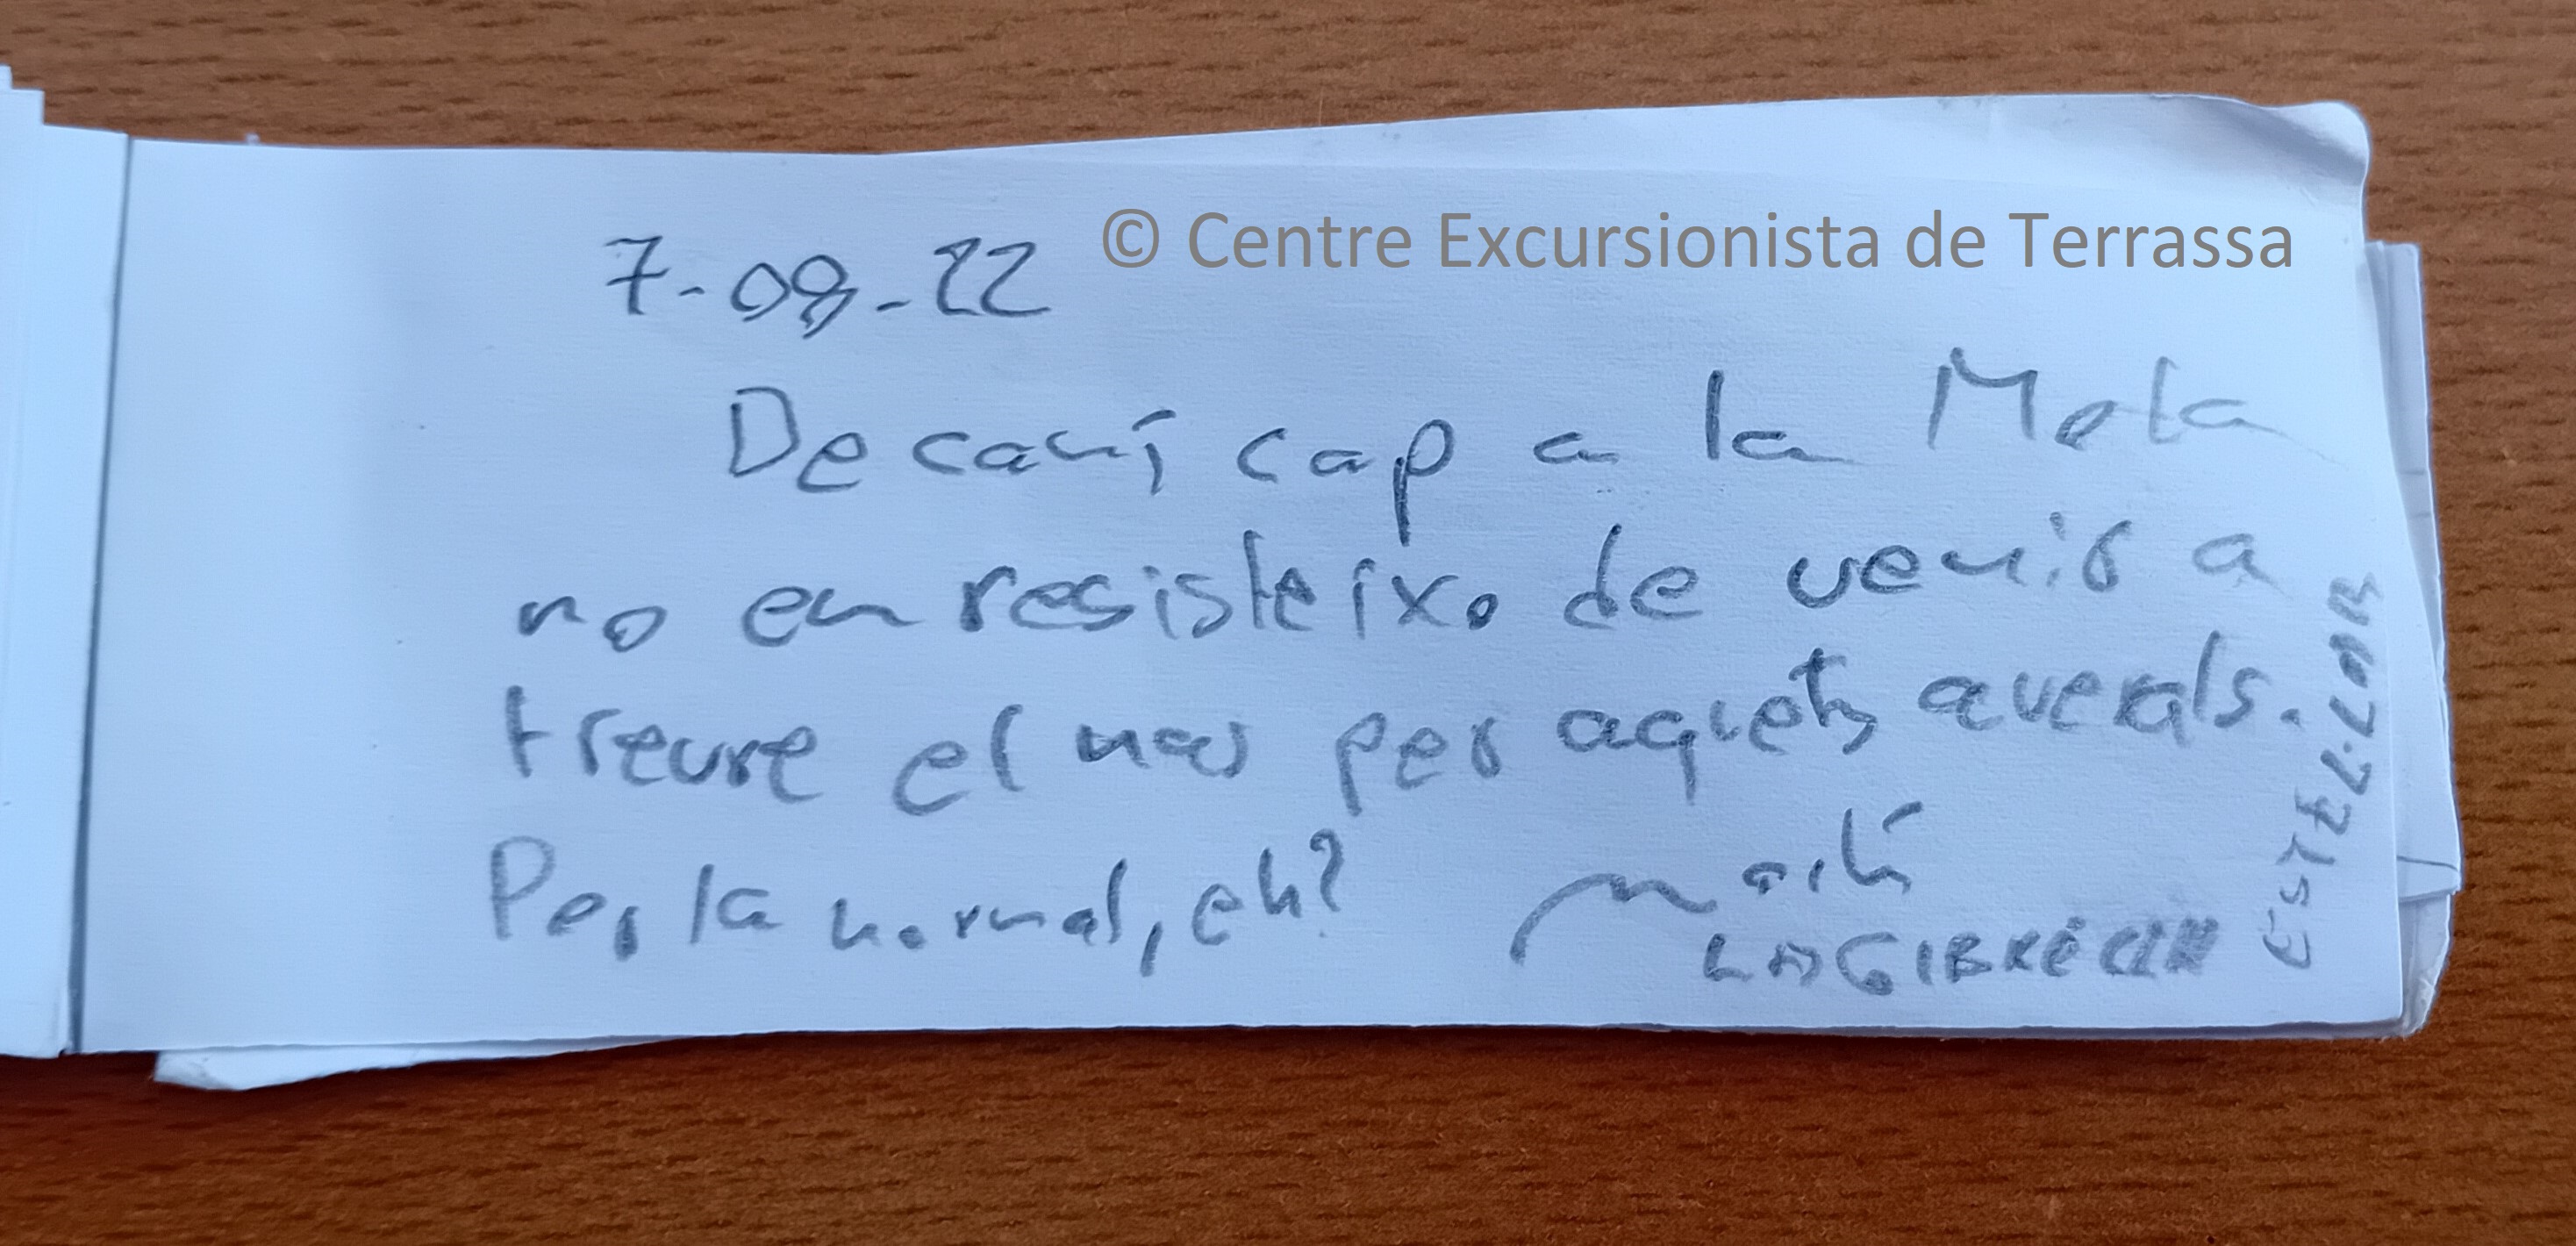 © Centre Excursionista de Terrassa
7-08-22
De camí cap a la Mola
no em resisteixo de venir a
treure el nas per aquets averals.
Per la normal, eh?
Martí
ESTEL·LAR